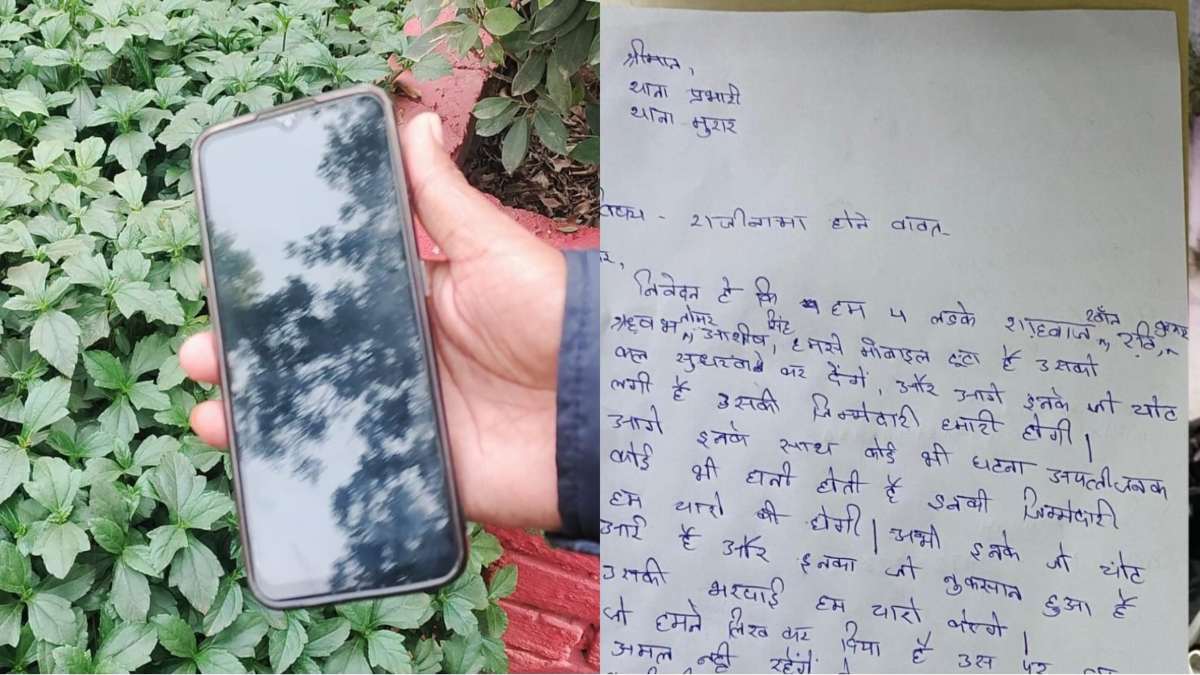 श्रीमान,
थाना प्रभारी
थाना मुरार
विषय - राजीनामा होने वावत
निवेदन है कि हम 4 लडके शाहवाज खाँन, रवि
ऋषभ तोमर, आशीष सिंह, हमसे मोबाइल टूटा है उसको
कल सुधरवा कर देंगे, और आगे इनके जो चोट
लगी है उसकी जिम्मेदारी हमारी होगी।
आगे इनके साथ कोई भी घटना आपत्तीजनक
कोई भी होती है इनकी जिम्मेदारी
हम चारो की होगी। अभी इनके जो चोट
आई है और इनका जो नुकसान हुआ है
उसकी भरपाई हम चारो करेंगे।
जो हमने लिख कर दिया है उस पर
अमल नही रहेंगे